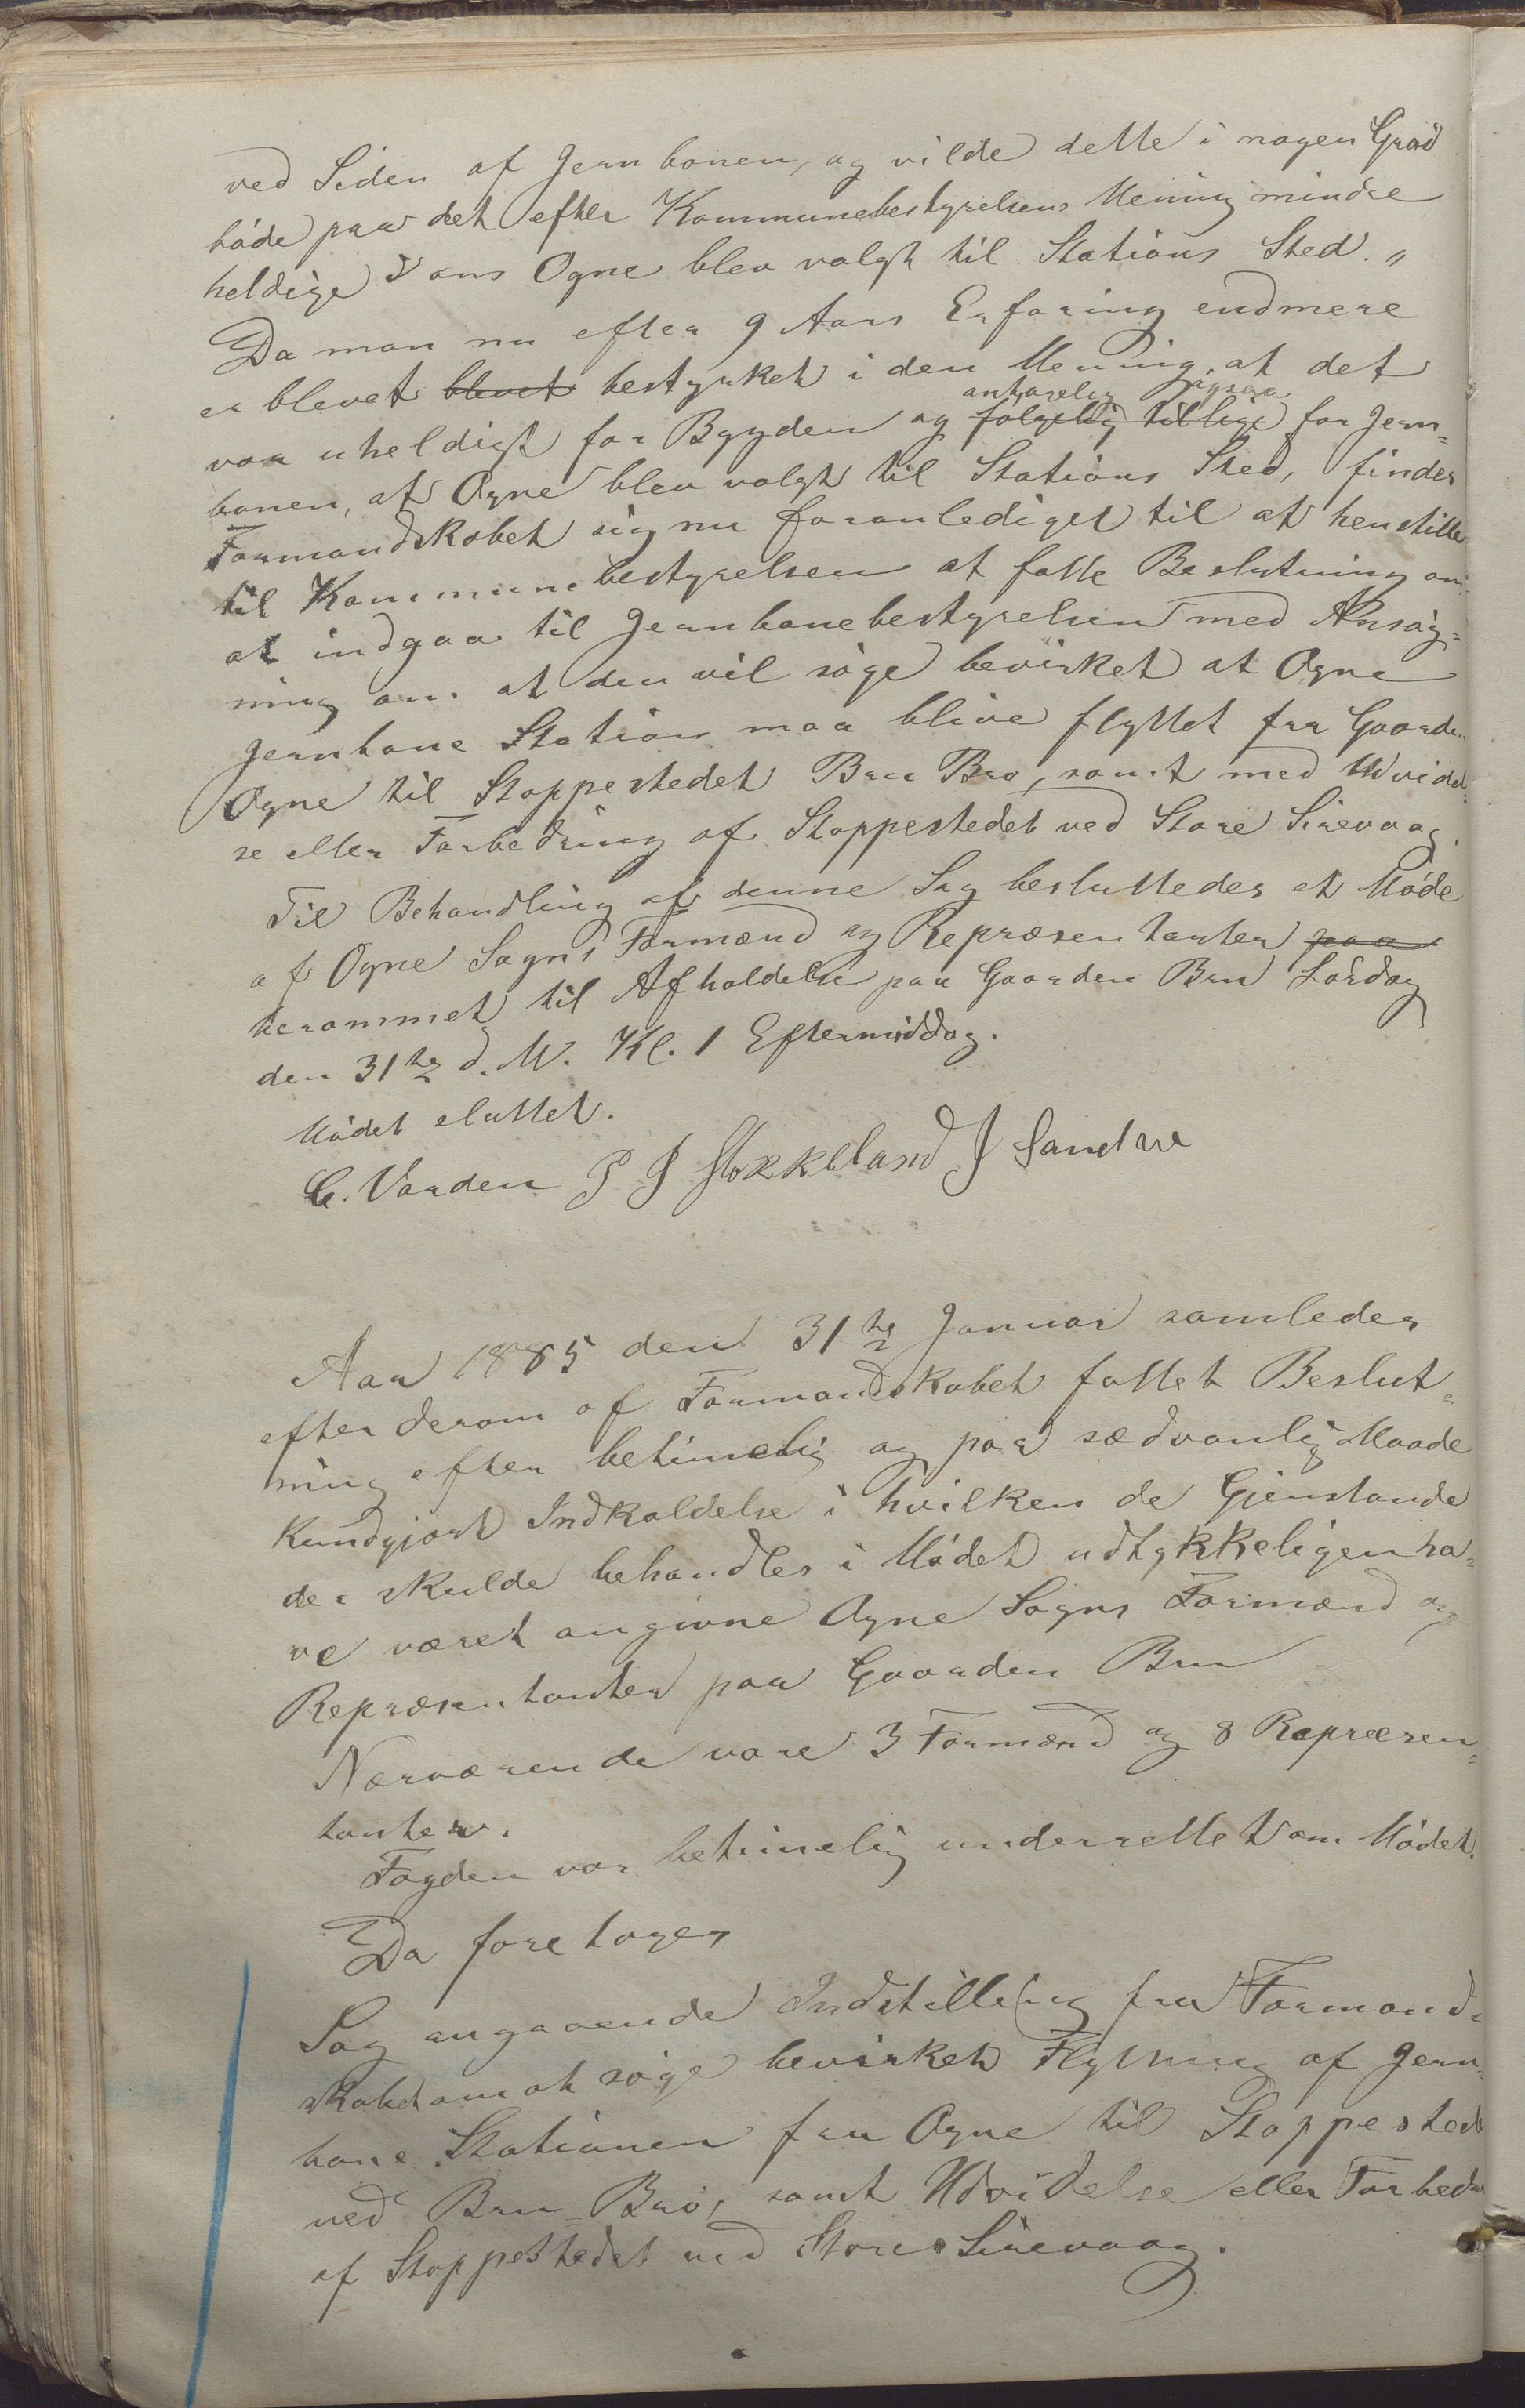 ved Siden af Jernbanen, og vilde dette i nogen Grad
bøde paa det efter Kommunebestyrelsens Mening mindre
heldige i ans Ogne blev valgt til Stations Sted."
Da man nu efter 9 Aars Erfaring endmere
er blevet blevet bestyrket i den Mening, at det
antagelig ogsaa
var uheldigt for Bygden og følgelig tillige for Jern-
banen, at Ogne blev valgt til Stations Sted, finder
Formandskabet sig nu foranlediget til at henstille
til Kommunebestyrelsen at fatte Beslutning om
at indgaa til Jernbanebestyrelsen med Ansøg-
ning om at den vil søge bevirket at Ogne
Jernbane Station maa blive flyttet fra Gaarden
Ogne til Stoppestedet Bru Bro, samt med Udvidel-
se eller Forbedring af Stoppestedet ved Store Sirevaag.
Til Behandling af denne Sag besluttedes et Møde
af Ogne Sogns Formænd og Repræsentanter paa
berammet til Afholdelse paa Gaarden Bru Lørdag
den 31te d. M. Kl. 1 Eftermiddag.
Mødet sluttet.
C. Varden P J Stokkeland J Sandve
Aar 1885 den 31te Januar samledes
efter derom af Formandskabet fattet Beslut-
ning efter betimelig og paa sædvanlig Maade
kundgjort Indkaldelse i hvilken de Gjenstande
der skulde behandles i Mødet udtykkeligen ha-
ve været angivne Ogne Sogns Formænd og
Repræsentanter paa Gaarden Bru
Nærværende vare 3 Formænd og 8 Repræsen-
tanter.
Fogden var betimelig underrettet om Mødet.
Da foretoges
Sag angaaende Indstilling fra Formand-
skabet om at søge bevirket Flytning af Jern-
bane Stationen fra Ogne til Stoppestedet
ved Bru-Bro, samt Udvidelse eller Forbedr
af Stoppestedet ved Store Sirevaag.